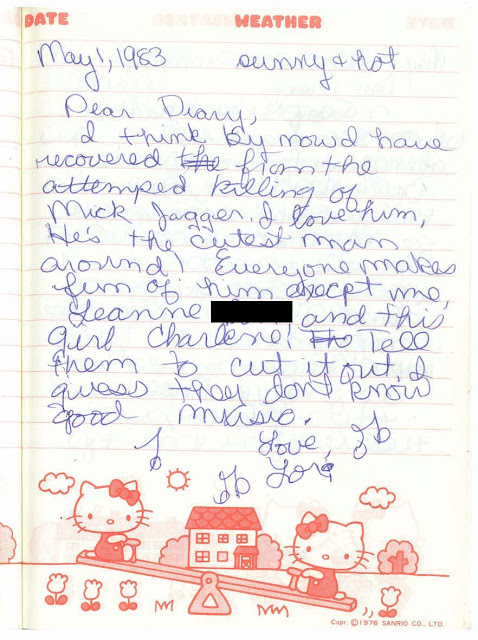 DATE WEATHER
May 1, 1983 sunny & hot
Dear Diary,
I think by now I have
recovered the from the
attemped killing of
Mick Jagger. I love him,
He's the cutest man
around! Everyone makes
fun of him except me,
Leanne and this
girl Charlene! Tell
them to cut it out. I
guess they don't know
good music.
Love,
Lori
Copr. ©1976 SANRIO CO., LTD.